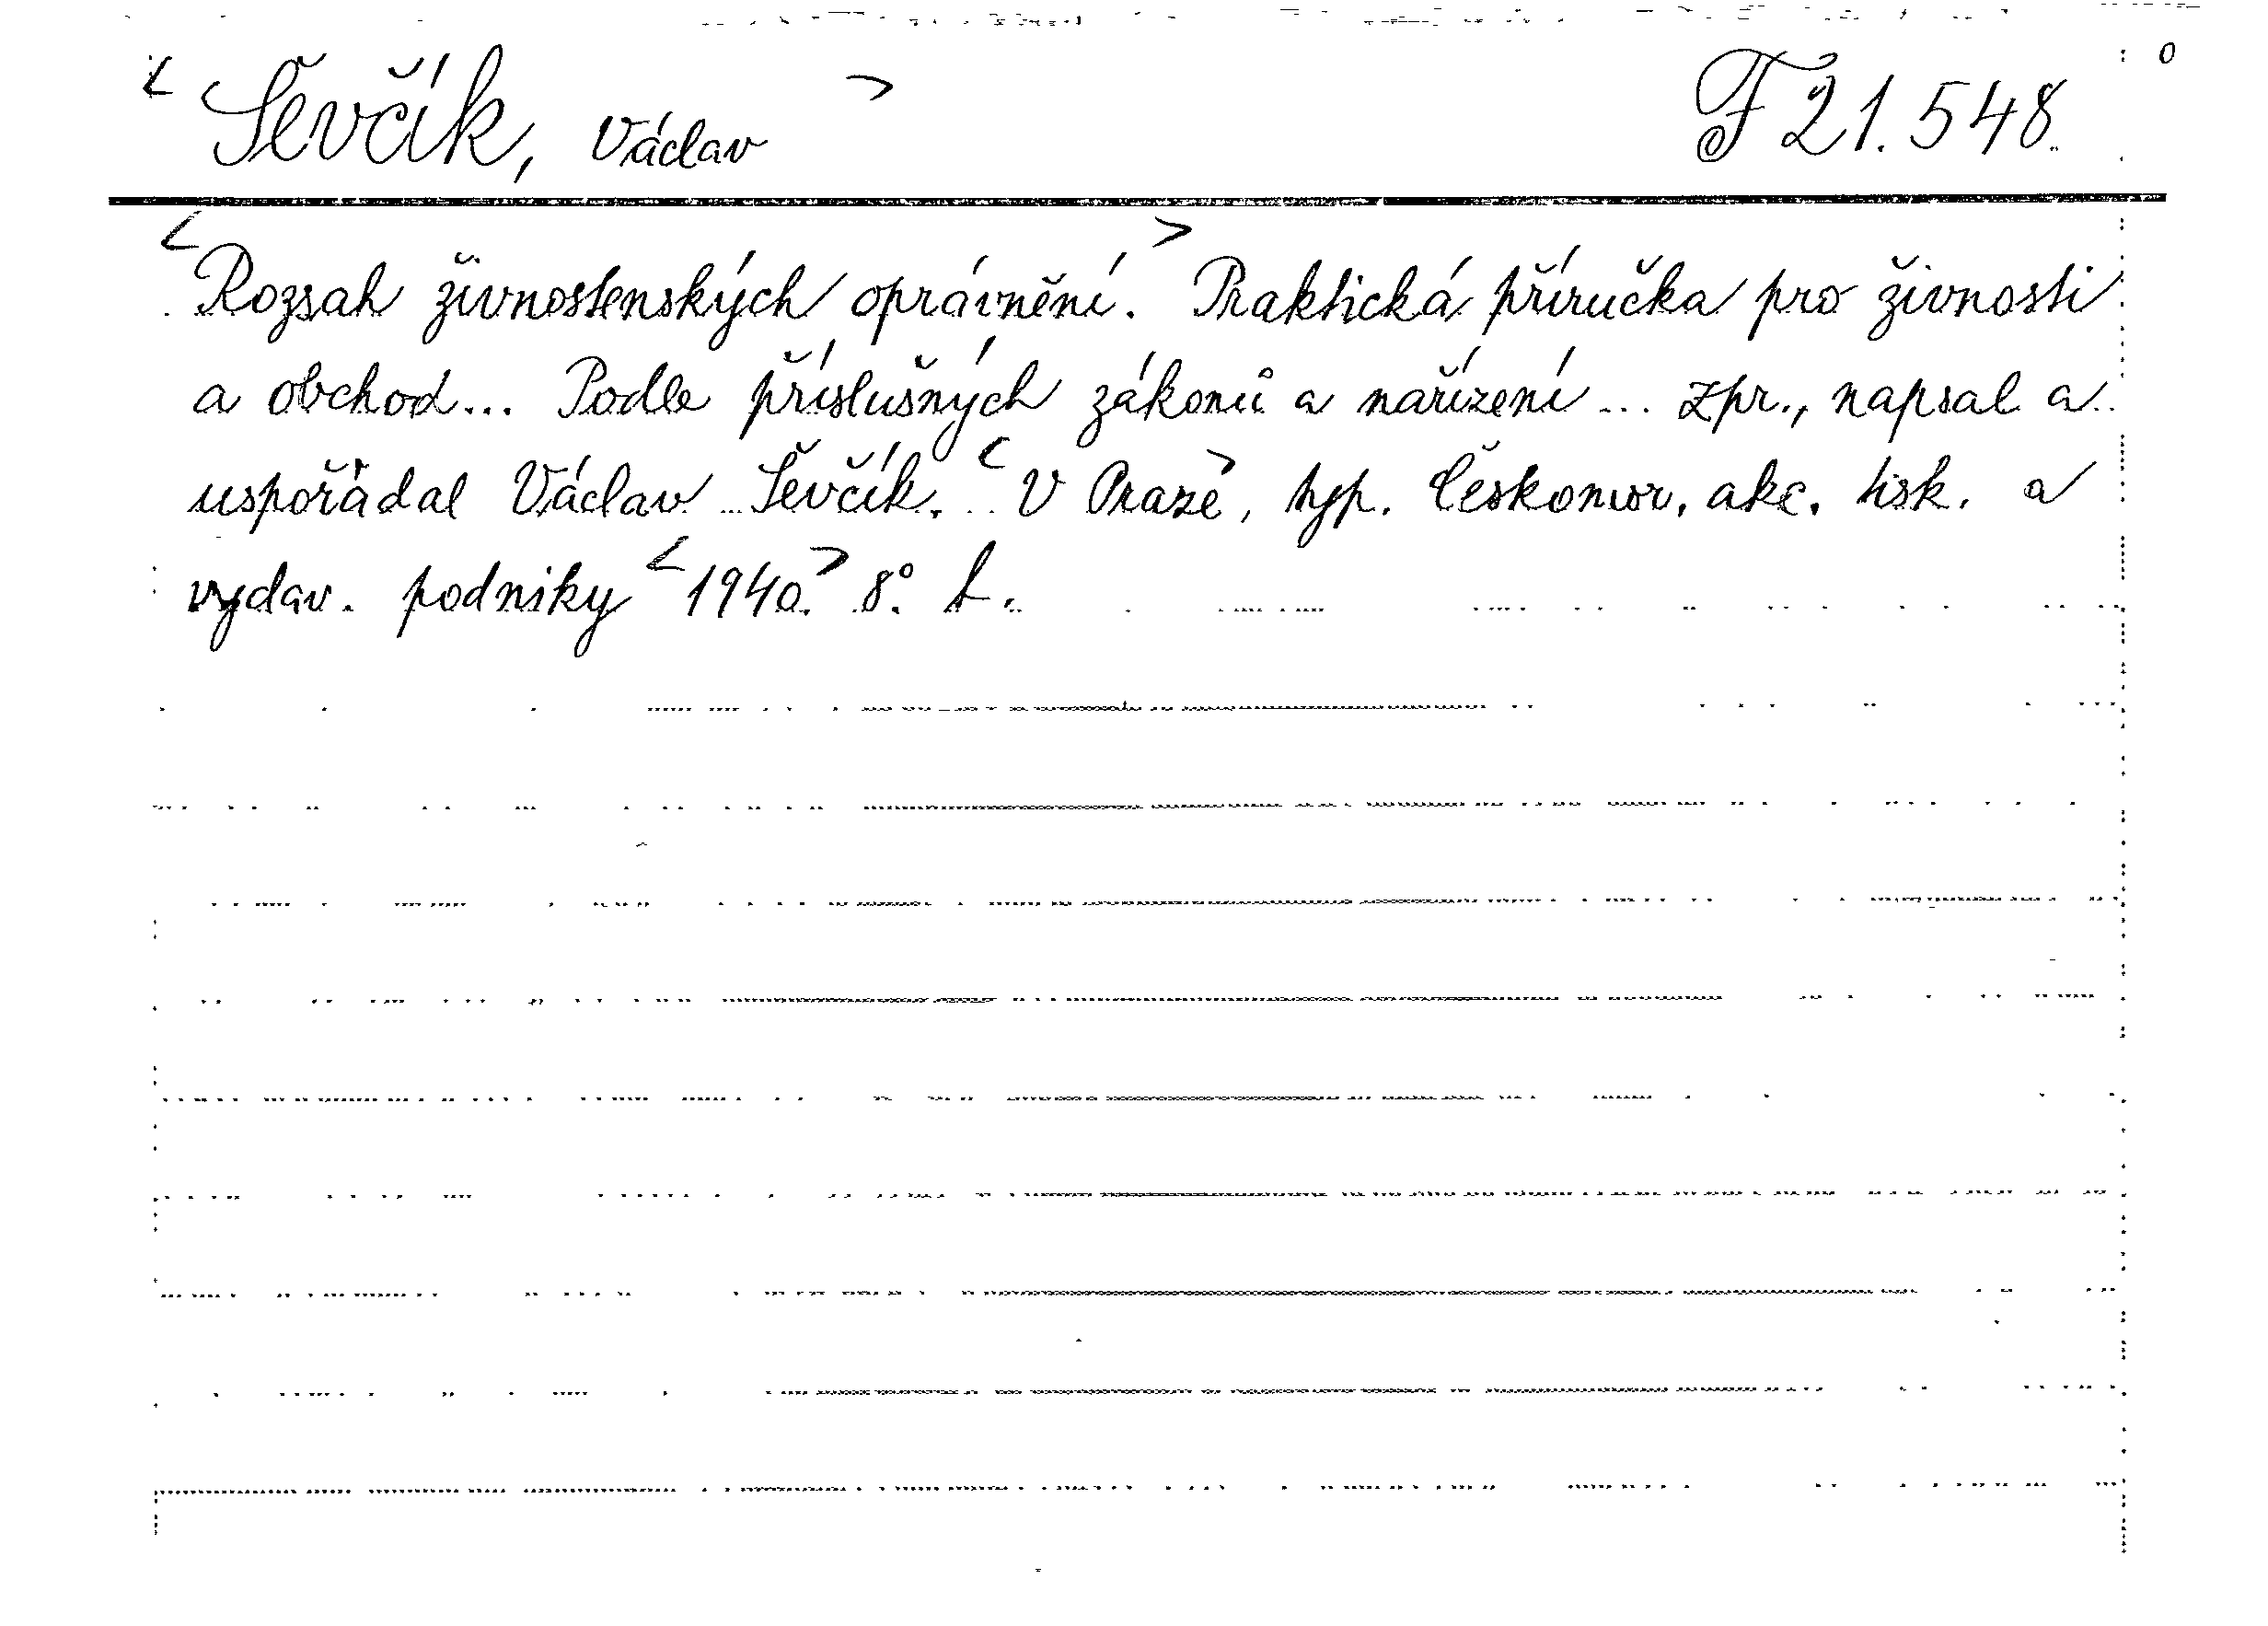 < Ševčík, Václav > F 21.548. 0
<Rozsah živnostenských oprávnění.> Praktická příručka pro živnosti
a obchod... Podle příslušných zákonů a nařízení ... zpr., napsal a
uspořádal Václav Ševčík. <V Praze>, typ. Českomor. akc. tisk. a
vydav. podniky <1940.> 8°.